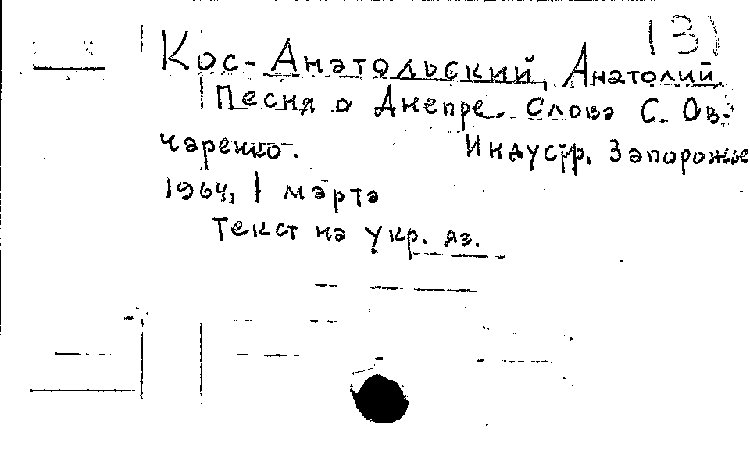 (3)
Кос-Анатольский, Анатолий
Песня о Днепре. Слова С. Ов-
чаренко. Индустр. Запорожье
1964, 1 марта
Текст на укр. яз.